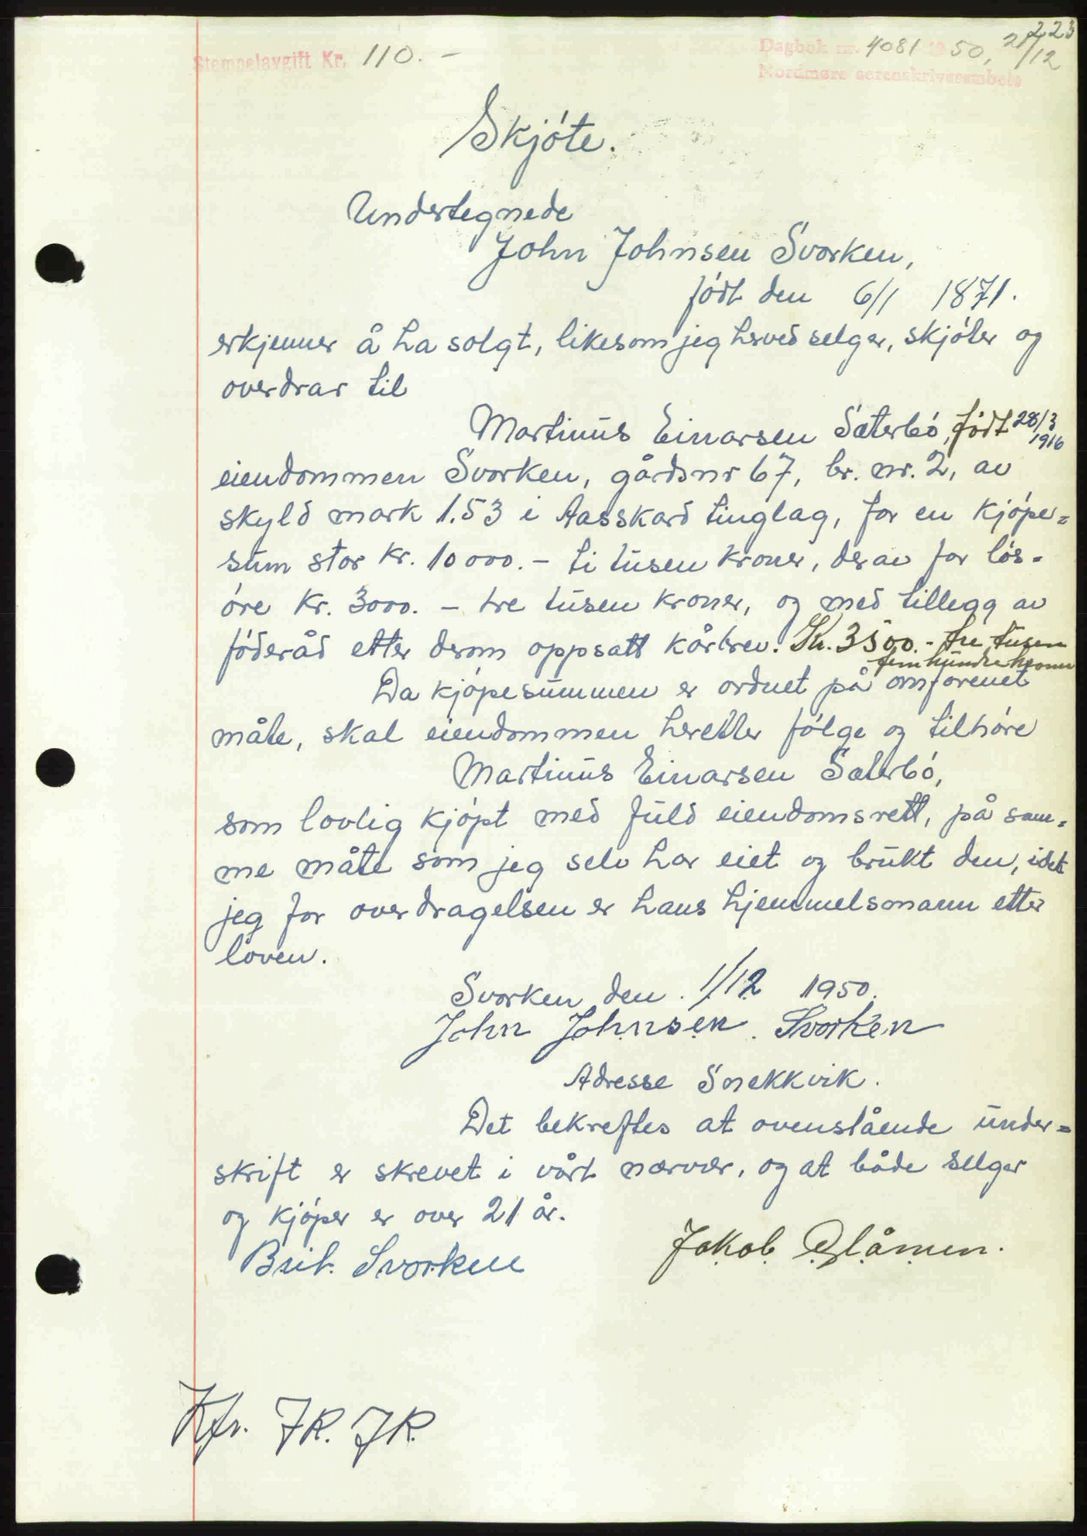 223
Stempelavgift Kr. 110.-
Dagbok nr. 4081 1950, 21/12
Nordmøre sorenskriverembete
Skjøte.
Undertegnede
John Johnsen Svorken,
født den 6/1 1871.
erkjenner å ha solgt, likesom jeg herved selger, skjøter og
overdrar til
Martinus Einarsen Sæterbø, født 28/3 1916
eiendommen Svorken, gårdsnr 67, br. nr. 2, av
skyld mark 1.53 i Aasskard tinglag, for en kjøpe=
sum stor kr. 10 000.- ti tusen kroner, derav for løs-
øre kr. 3000. - tre tusen kroner, og med tillegg av
føderåd etter derom oppsatt kårbrev. Kr. 3500.- tre tusen
fem hundre kroner
Da kjøpesummen er ordnet på omforenet
måte, skal eiendommen heretter følge og tilhøre
Martinus Einarsen Sæterbø,
som lovlig kjøpt med fuld eiendomsrett, på sam=
me måte som jeg selv har eiet og brukt den, idet
jeg for overdragelsen er hans hjemmelsmann etter
loven.
Svorken den 1/12 1950.
John Johnsen Svorken
Adresse Snekkvik.
Det bekreftes at ovenstående under=
skrift er skrevet i vårt nærvær, og at både selger
og kjøper er over 21 år.
Brit Svorken
Jakob Glåmen.
Kfr. JR. JR